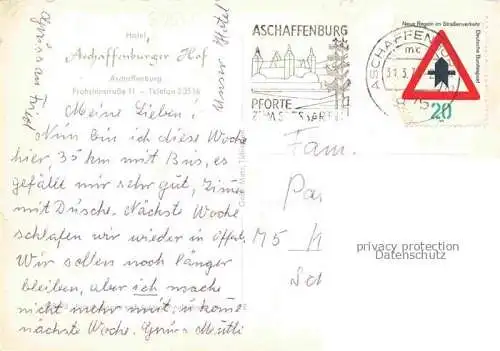 Hotel
Aschaffenburger Hof
Aschaffenburg
Frohsinnstraße 11 – Telefon 23516
Unser Hotel
Meine Lieben!
Nun bin ich diese Woche
hier, 35 km mit Bus, es
gefällt mir sehr gut, Zimmer
mit Dusche. Nächste Woche
schlafen wir wieder in
Wir sollen noch länger
bleiben, aber ich mache
nicht mehr mit, u. komme
nächste Woche. Gruss Mutti
ASCHAFFENBURG
PFORTE
ZUM SPESSART
ASCHAFFENBURG
mc
Neue Regeln im Straßenverkehr
Deutsche Bundespost
20
Fam.
Pa
M5
privacy protection
Datenschutz